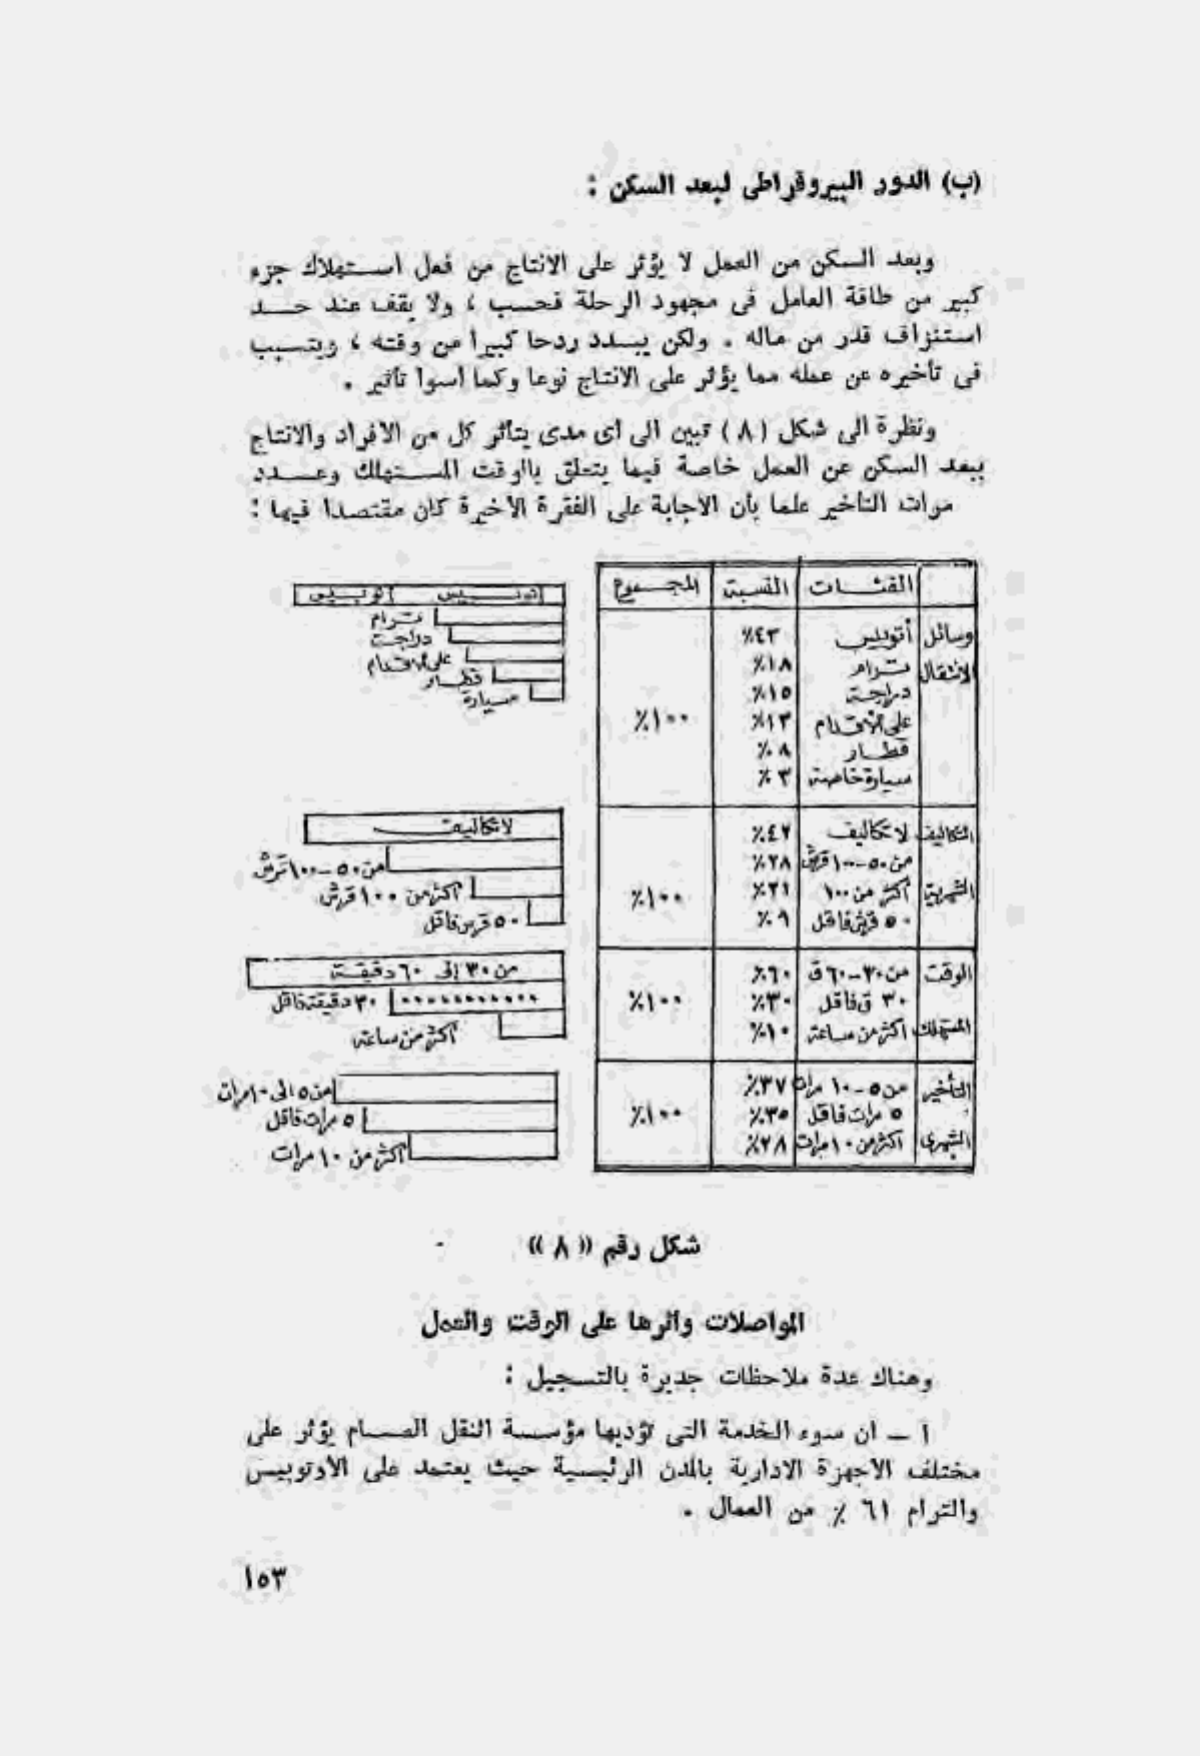 (ب) الدور البيروقراطى لبعد السكن :
وبعد السكن من العمل لا يؤثر على الانتاج من فعل استهلاك جزء
كبير من طاقة العامل فى مجهود الرحلة فحسب ، ولا يقف عند حد
استنزاف قدر من ماله . ولكن يبدد ردحا كبيرا من وقته ، ويتسبب
فى تأخيره عن عمله مما يؤثر على الانتاج نوعا وكما أسوأ تأثير .
ونظرة الى شكل (٨) تبين الى أى مدى يتأثر كل من الافراد والانتاج
ببعد السكن عن العمل خاصة فيما يتعلق بالوقت المستهلك وعدد
مرات التأخير علما بأن الاجابة على الفقرة الأخيرة كان مقتصدا فيها :
الفئات النسبة المجموع
وسائل أتوبيس ٤٣٪
الانتقال ترام ١٨٪
دراجة ١٥٪
على الأقدام ١٣٪ ١٠٠٪
قطار ٨٪
سيارة خاصة ٣٪
التكاليف لا تكاليف ٤٢٪
من ٥٠-١٠٠ قرش ٢٨٪
الشهرية أكثر من ١٠٠ ٢١٪ ١٠٠٪
٥٠ قرش فاقل ٩٪
الوقت من ٣٠-٦٠ ق ٦٠٪
٣٠ ق فاقل ٣٠٪ ١٠٠٪
المستهلك اكثر من ساعة ١٠٪
التأخير من ٥-١٠ مرات ٣٧٪
٥ مرات فاقل ٣٥٪ ١٠٠٪
الشهرى اكثر من ١٠ مرات ٢٨٪
ترام
دراجة
على الأقدام
قطار
سيارة
لا تكاليف
من ٥٠-١٠٠ قرش
أكثر من ١٠٠ قرش
٥٠ قرش فاقل
من ٣٠ إلى ٦٠ دقيقة
٣٠ دقيقة فاقل
أكثر من ساعة
من ٥ الى ١٠ مرات
٥ مرات فاقل
أكثر من ١٠ مرات
شكل رقم (( ٨ ))
المواصلات وأثرها على الوقت والعمل
وهناك عدة ملاحظات جديرة بالتسجيل :
أ — ان سوء الخدمة التى تؤديها مؤسسة النقل العام يؤثر على
مختلف الأجهزة الادارية بالمدن الرئيسية حيث يعتمد على الاوتوبيس
والترام ٦١ ٪ من العمال .
١٥٣